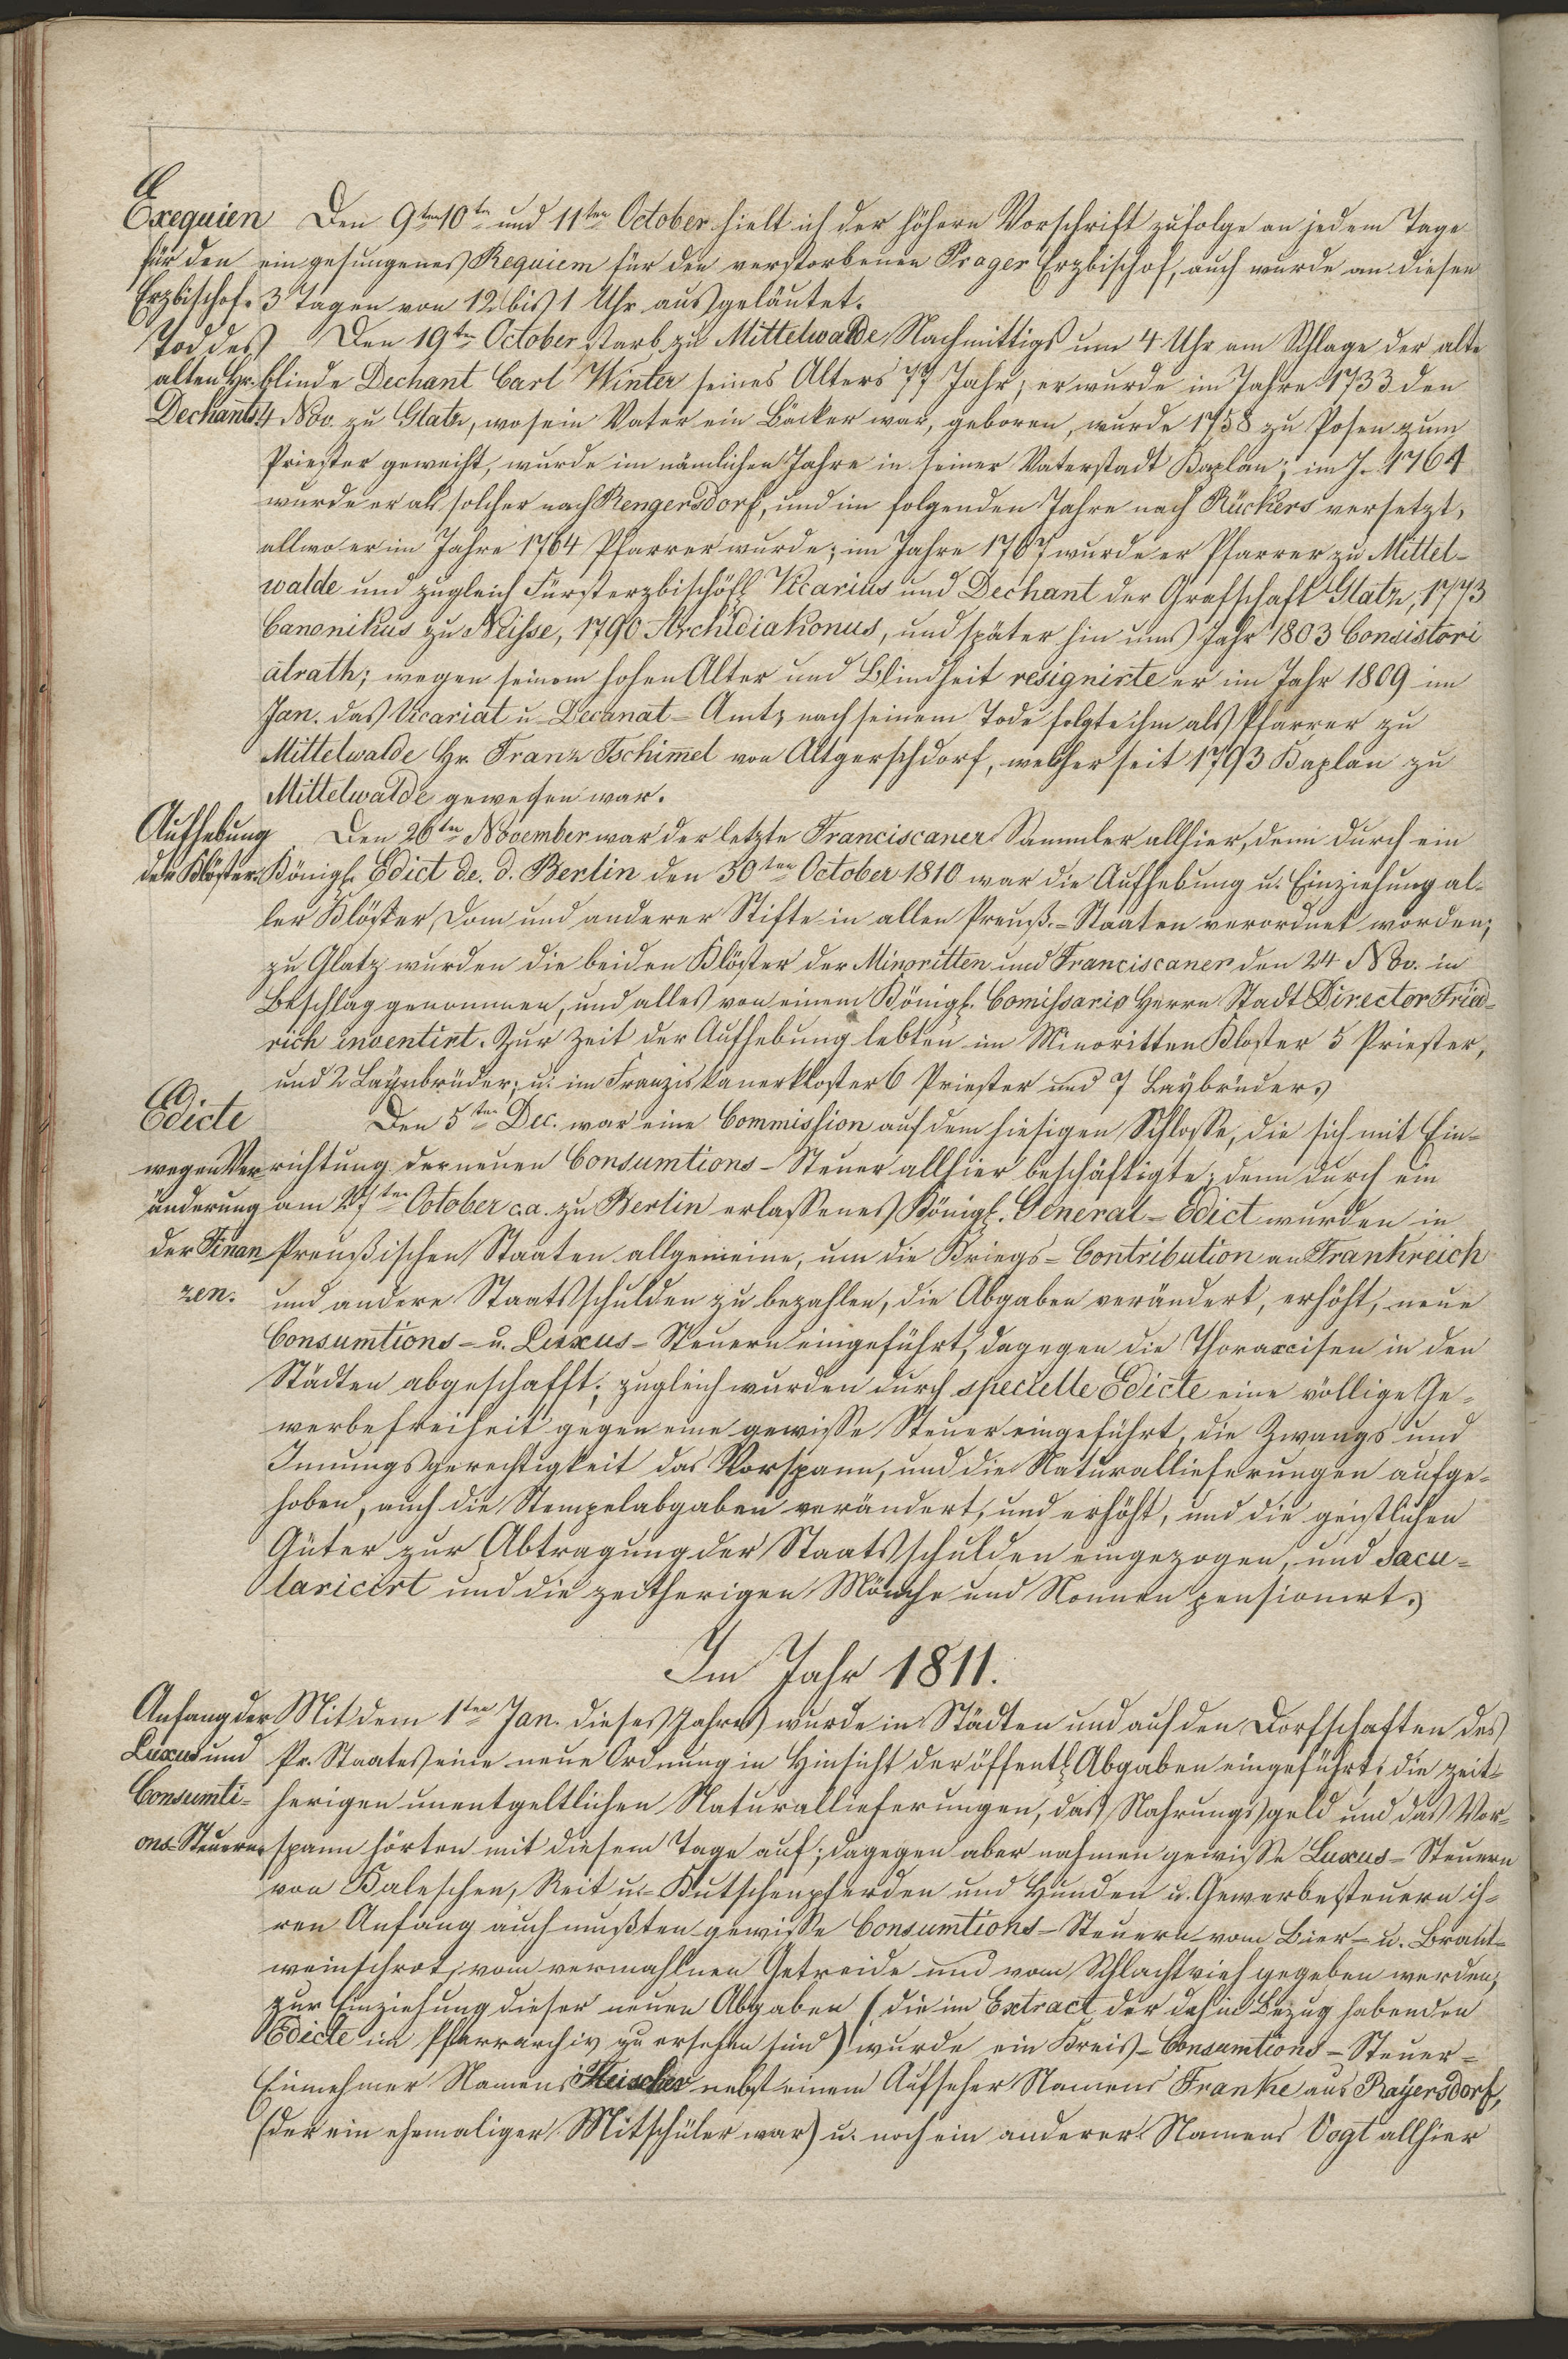 Exequien
für den
Erzbischof.
Den 9ten 10ten und 11ten October hielt ich der höhern Vorschrift zufolge an jedem Tage
ein gesungenes Requiem für den verstorbenen Prager Erzbischof, auch wurde an diesen
3 Tagen von 12 bis 1 Uhr ausgeläutet.
Tod des
alten Hr.
Dechants.
Den 19ten October starb zu Mittelwalde Nachmittigs um 4 Uhr am Schlage der alte
blinde Dechant Carl Winter seines Alters 77 Jahr; er wurde im Jahre 1733 den
4 Nov. zu Glatz, wo sein Vater ein Bäcker war, geboren, wurde 1758 zu Posen zum
Priester geweiht, wurde im nämlichen Jahre in seiner Vaterstadt Kaplan; im J. 1761
wurde er als solcher nach Rengersdorf, und im folgenden Jahre nach Rückers versetzt,
allwo er im Jahre 1764 Pfarrer wurde; im Jahre 1767 wurde er Pfarrer zu Mittel-
walde und zugleich Fürsterzbischöfl. Vicarius und Dechant der Grafschaft Glatz, 1773
Canonikus zu Neisse, 1790 Archidiakonus, und später hin ums Jahr 1803 Consistori
alrath; wegen seinem hohen Alter und Blindheit resignirte er im Jahr 1809 im
Jan. das Vicariat u. Decanat-Amt; nach seinem Tode folgte ihm als Pfarrer zu
Mittelwalde Hr. Franz Tschimel von Altgerschdorf, welcher seit 1793 Kaplan zu
Mittelwalde gewesen war.
Aufhebung
der Klöster.
Den 26ten November war der letzte Franciscaner Sammler allhier, denn durch ein
Königl. Edict de. d. Berlin den 30ten October 1810 war die Aufhebung u. Einziehung al-
ler Klöster, Dom und anderer Stifte in allen Preuß.-Staaten verordnet worden;
zu Glatz wurden die beiden Klöster der Minoritten und Franciscaner den 24 Nov. in
Beschlag genommen, und alles von einem Königl. Comissario Herrn Stadt Director Fried-
rich inventirt. Zur Zeit der Aufhebung lebten im Minoritten Kloster 5 Priester,
und 2 Laynbrüder; u. im Franziskanerkloster 6 Priester und 7 Laybrüder.
Edicte
wegen Ver-
änderung
der Finan-
zen.
Den 5ten Dec. war eine Commission auf dem hiesigen Schlosse, die sich mit Ein-
richtung der neuen Consumtions-Steuer allhier beschäftigte; denn durch ein
am 27ten October c.a. zu Berlin erlassenes Königl. General-Edict wurden in
Preußischen Staaten allgemeine, um die Kriegs-Contribution an Frankreich
und andere Staatsschulden zu bezahlen, die Abgaben verändert, erhöht, neue
Consumtions- u. Luxus-Steuern eingeführt, dagegen die Thoraccisen in den
Städten abgeschafft; zugleich wurden durch specielle Edicte eine völlige Ge-
werbefreiheit gegen eine gewisse Steuer eingeführt, die Zwangs und
Innungsgerechtigkeit das Vorspann, und die Naturallieferungen aufge-
hoben, auch die Stempelabgaben verändert, und erhöht, und die geistlichen
Güter zur Abtragung der Staatsschulden eingezogen, und sacu-
laricirt und die zeitherigen Mönche und Nonnen pensionirt.
Im Jahr 1811.
Anfang der
Luxus und
Consumti-
ons-Steuern.
Mit dem 1ten Jan. dieses Jahres wurde in Städten und auf den Dorfschaften des
Pr. Staates eine neue Ordnung in Hinsicht der öffentl. Abgaben eingeführt; die zeit-
herigen unentgeltlichen Naturallieferungen, das Nahrungsgeld und das Vor-
spann hörten mit diesem Tage auf; dagegen aber nahmen gewisse Luxus-Steuern
von Kaleschen, Reit u.-Kutschenpferden und Hunden u. Gewerbesteuern ih-
ren Anfang auch mußten gewisse Consumtions-Steuern vom Bier- u. Brant-
weinschrot, vom vermahlnen Getreide und vom Schlachtvieh gegeben werden;
zur Einziehung dieser neuen Abgaben (die im Extract der dahin Bezug habenden
Edicte im Pfarrarchiv zu ersehen sind) wurde ein Kreis-Consumtions-Steuer-
Einnehmer Namens nebst einem Aufseher Namens Franke aus Rayersdorf,
(der ein ehemaliger Mitschüler war) u. noch ein anderer Namens Vogt allhier